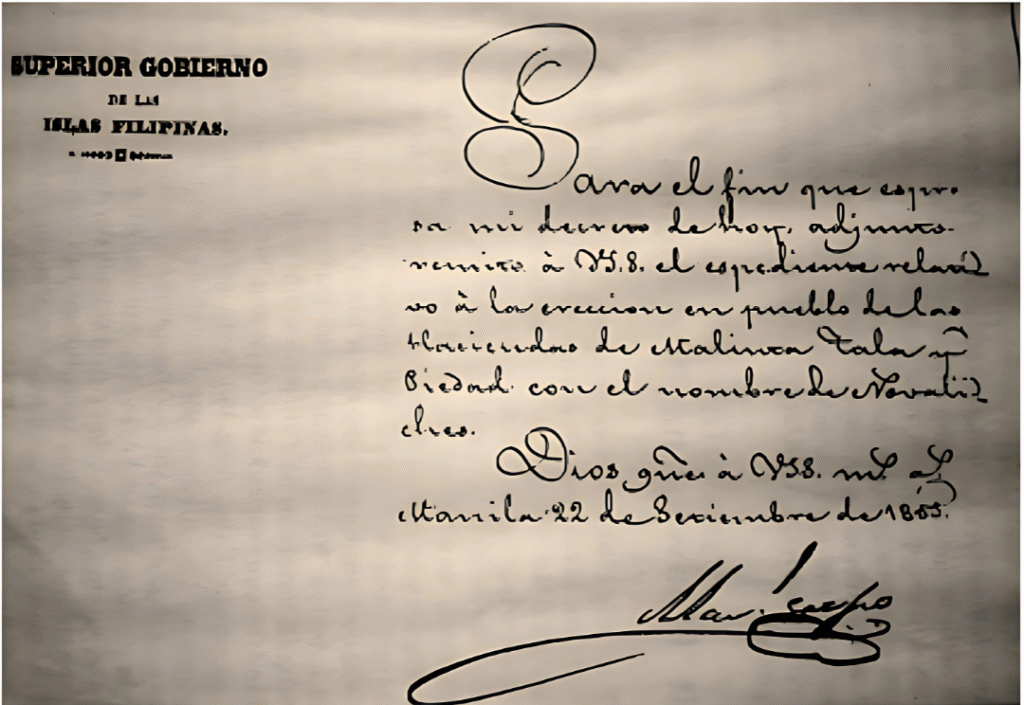 SUPERIOR GOBIERNO
DE LAS
ISLAS FILIPINAS.
Para el fin que espre-
sa mi decreto de hoy, adjunto
remito à V.S. el espediente relati-
vo à la ereccion en pueblo de las
Haciendas de Malinta Tala y
Piedad con el nombre de Novali-
ches.
Dios gũe à V.S. m.s a.s
Manila 22 de Setiembre de 1855.
Man.l Crespo